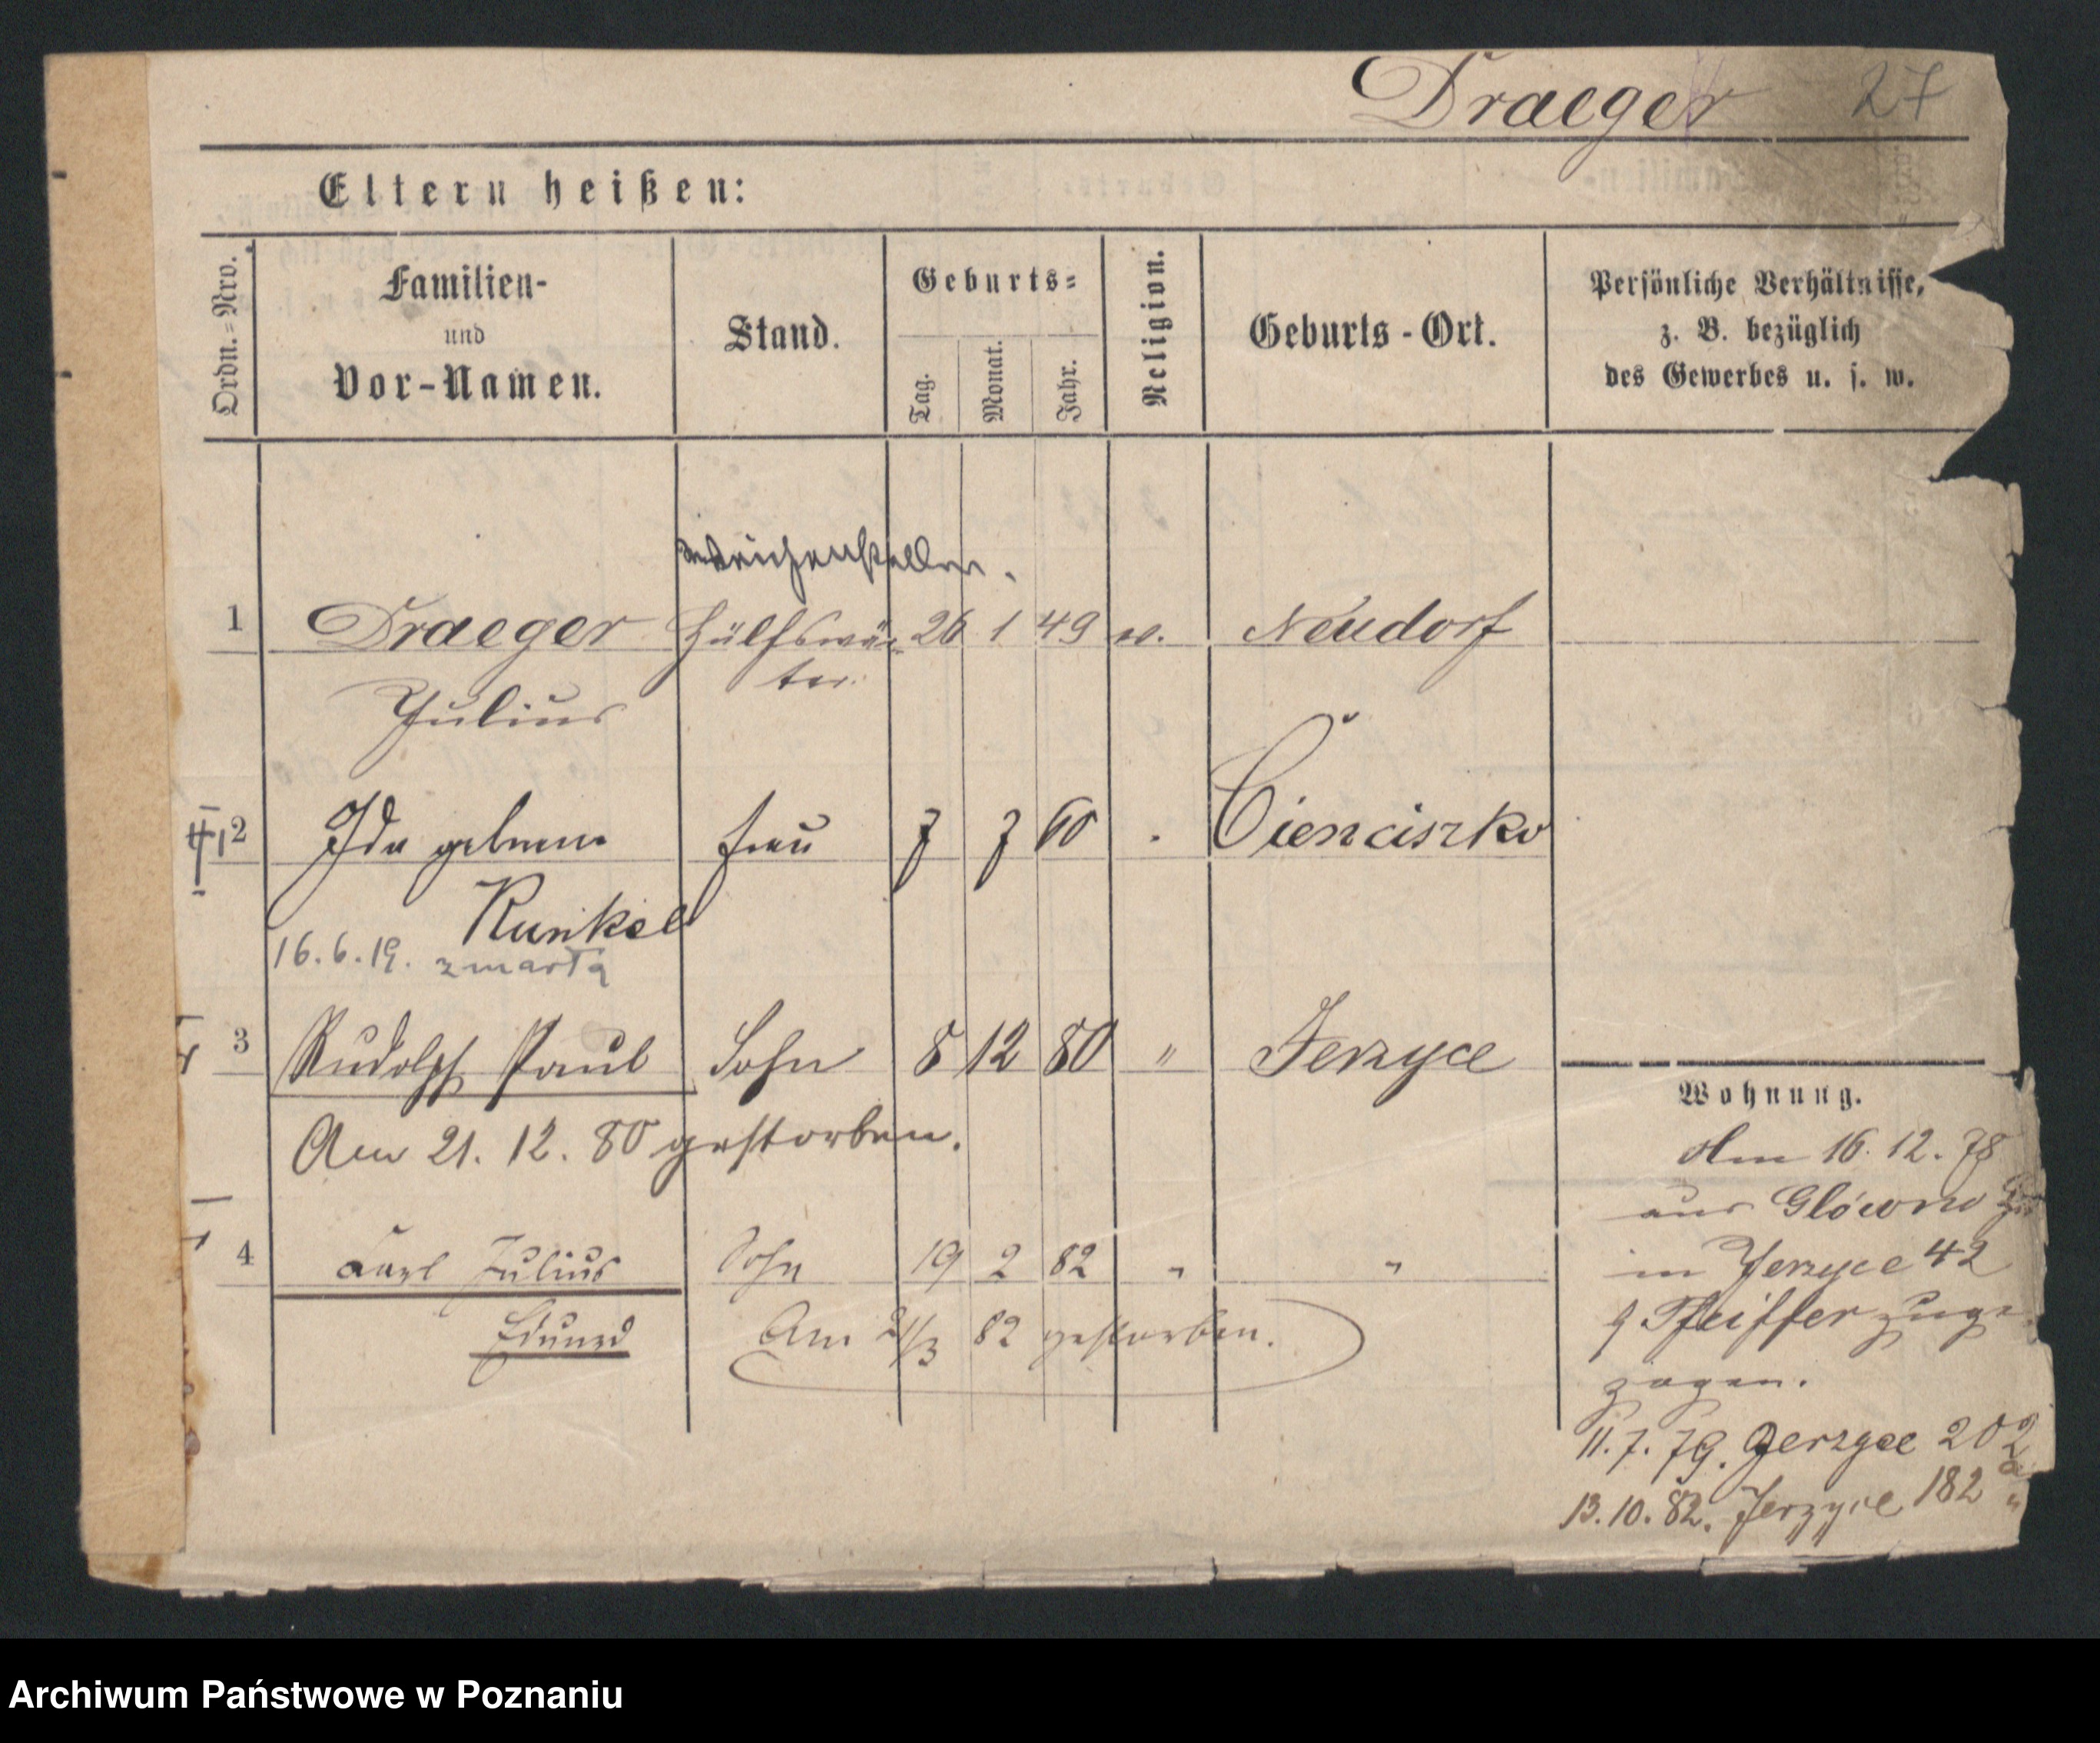 Draeger 27
Eltern heißen:
Ordn.=Nro.
Familien-
und
Vor-Namen.
Stand.
Geburts=
Tag.
Monat.
Jahr.
Religion.
Geburts-Ort.
Persönliche Verhältnisse,
z. B. bezüglich
des Gewerbes u. s. w.
Weichensteller.
1 Draeger Hülfswär 26 1 49 ev. Neudorf
ter.
Julius
2 Ida geborene Frau 7 7 60 Cienciszko
Runkel
16.6.19. zmarła
3 Rudolph Paul Sohn 8 12 80 " Jerzyce
Am 21. 12. 80 gestorben.
4 Carl Julius Sohn 19 2 82 " "
Eduard Am 21/3 82 gestorben.
Wohnung.
Am 16. 12. 78
aus Glówno
in Jerzyce 42
Pfeiffer zuge
zogen.
11. 7. 79. Jerzyce 202
13. 10. 82. Jerzyce 182
Archiwum Państwowe w Poznaniu